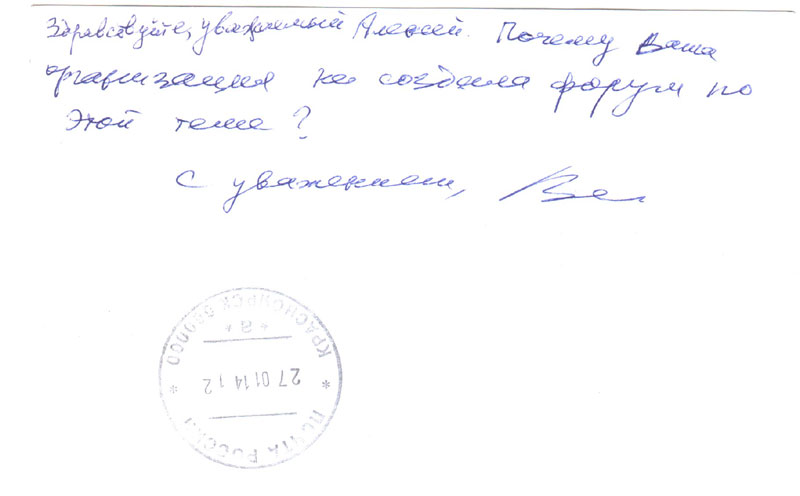 Здравствуйте, уважаемый Алексей. Почему Ваша
организация не создала форум по
этой теме?
С уважением,
КРАСНОЯРСК 660000
* а *
27 01 14 12
ПОЧТА РОССИИ